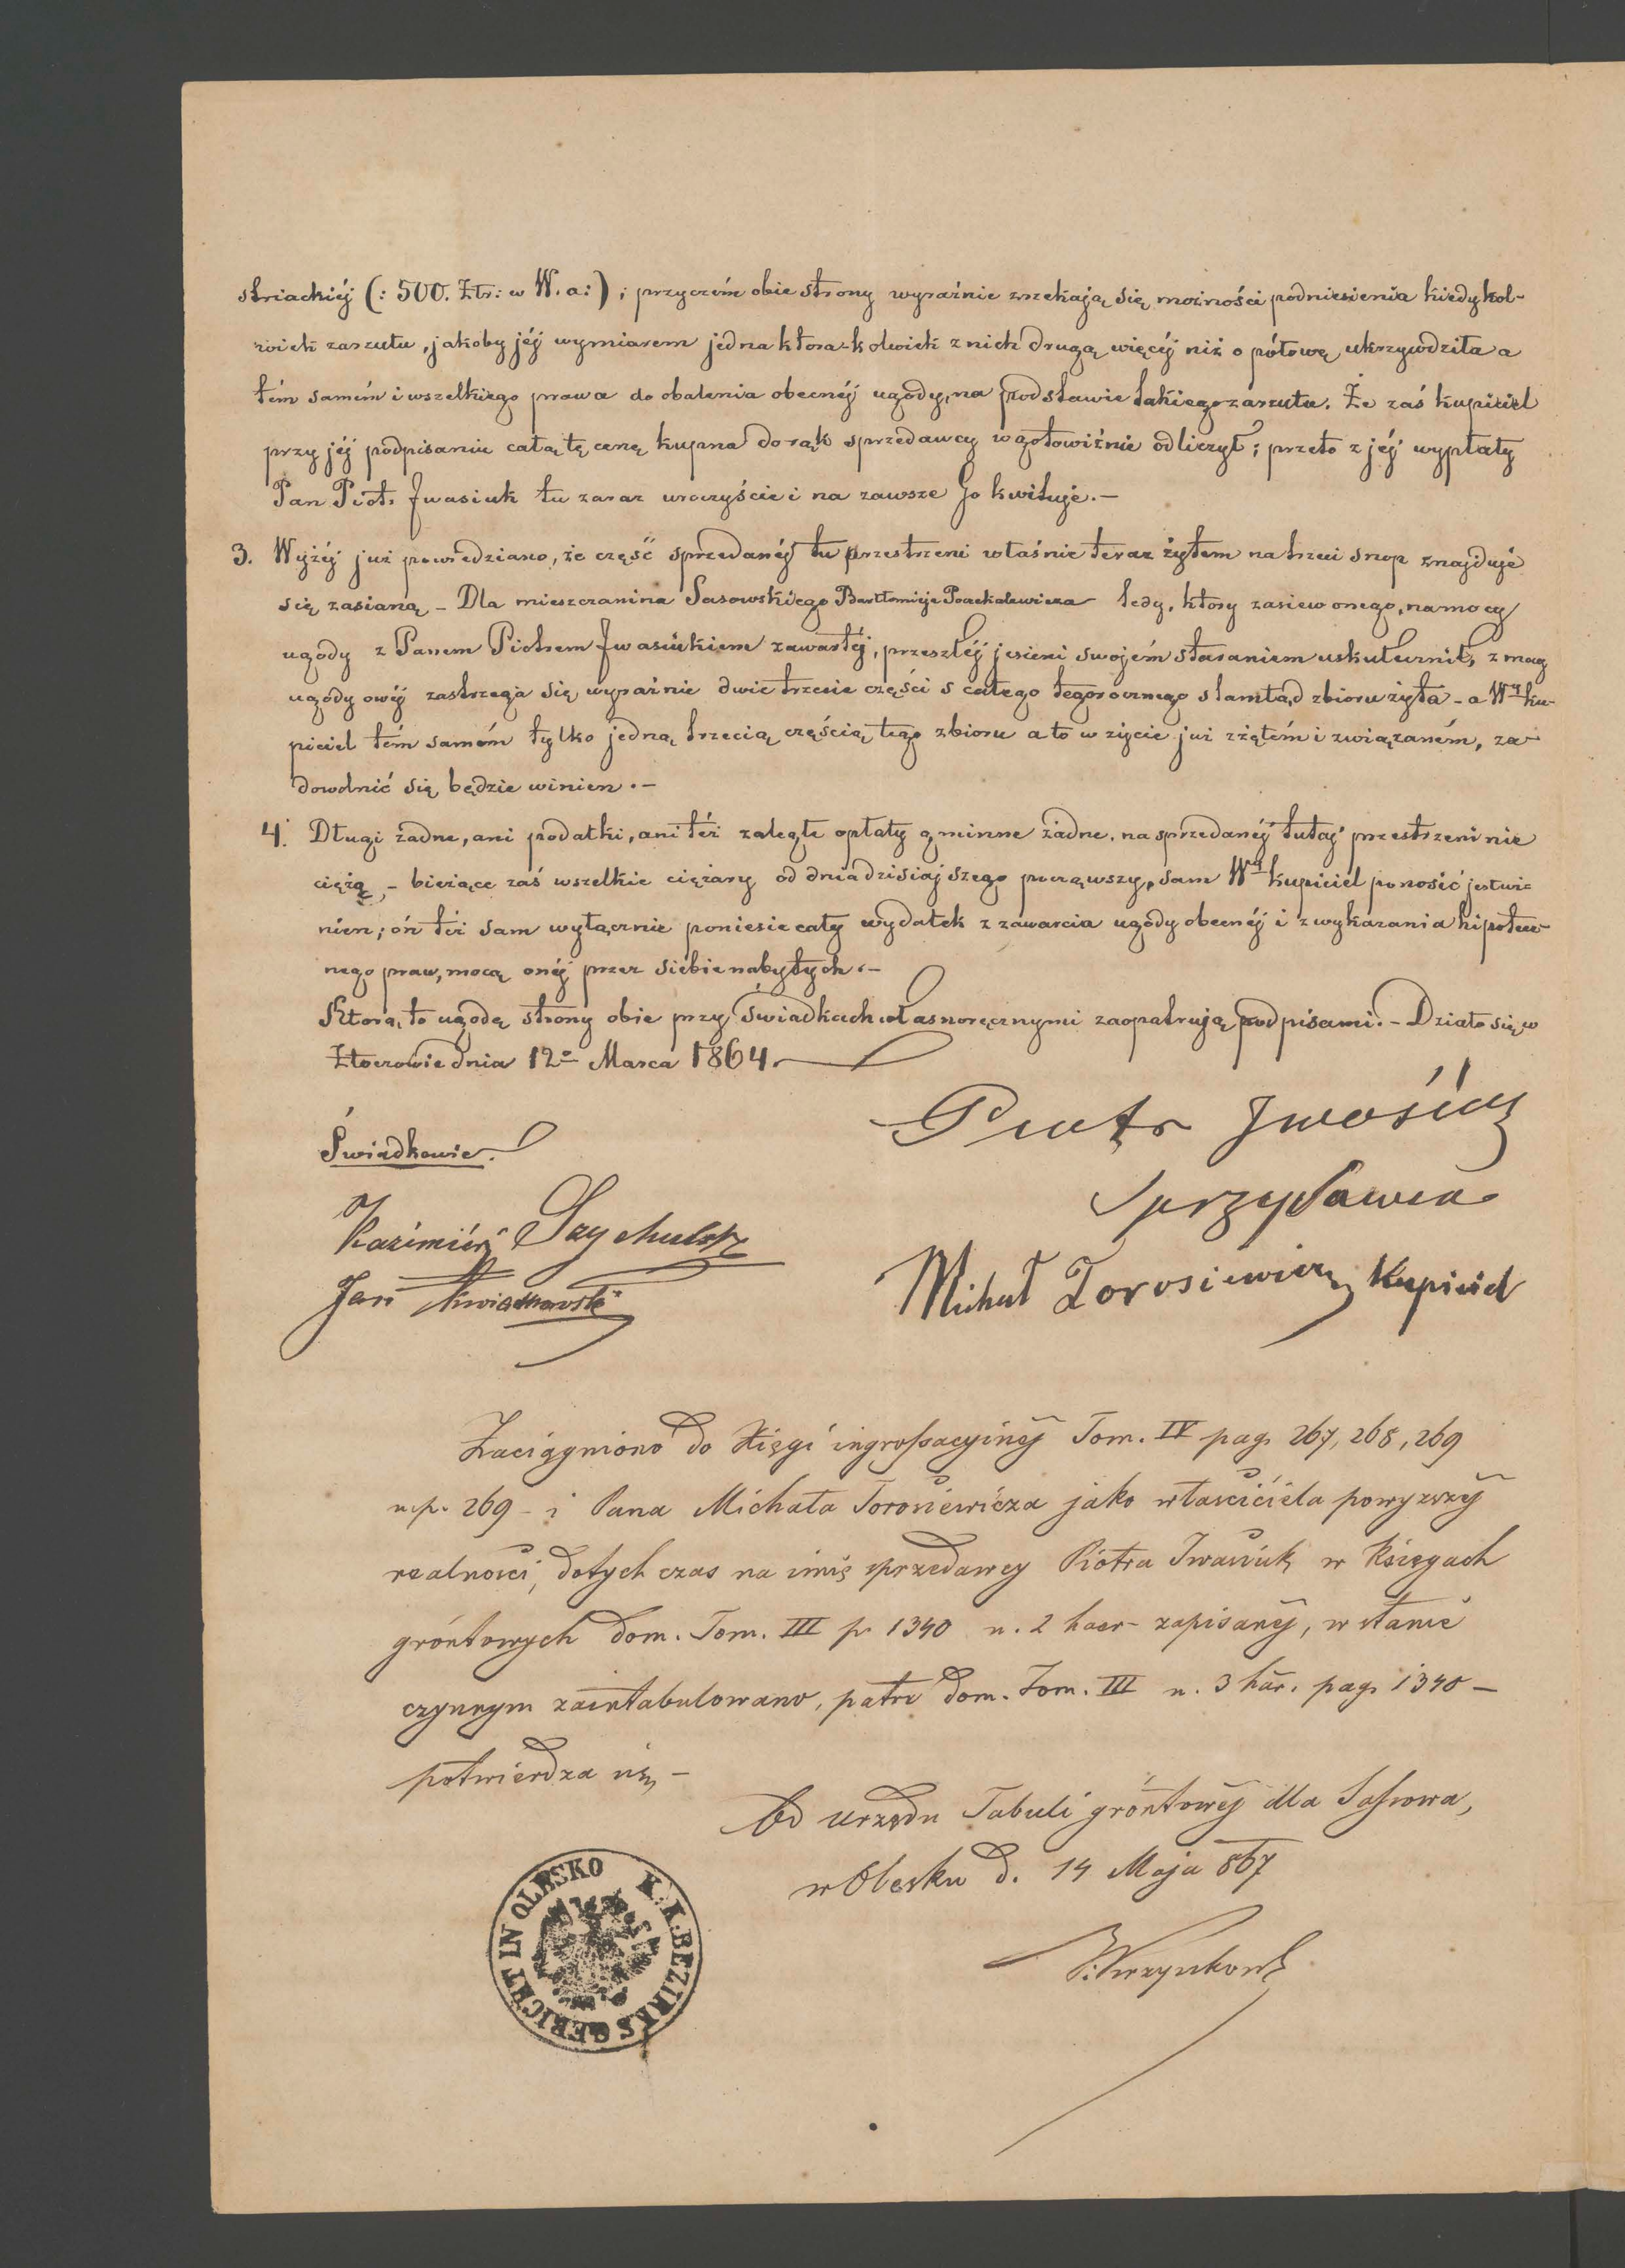 striackiéj (: 500. Złr: w W. a:) ; przyczém obie strony wyraźnie zrzekają się możności podniesienia kiedykol-
wiek zarzutu, jakoby jéj wymiarem jedna która-kolwiek z nich drugą więcéj niż o połowę ukrzywdziła a
tém samém i wszelkiego prawa do obalenia obecnéj ugody, na podstawie takiego zarzutu. Że zaś kupiciel
przy jéj podpisaniu całą tę cenę kupna do rąk sprzedawcy w gotowiźnie odliczył; przeto z jéj wypłaty
Pan Piotr Iwasiuk tu zaraz uroczyście i na zawsze Go kwituje.—
3. Wyżéj już powiedziano, że część sprzedanéj tu przestrzeni właśnie teraz żytem na trzeci snop znajduje
się zasianą – Dla mieszczanina Sasowskiego Bartłomieja tedy, który zasiew onego, na mocy
ugody z Panem Piotrem Iwasiukiem zawartéj, przeszłéj jesieni swojém staraniem uskutecznił, z mocy
ugody owéj zastrzega się wyraźnie dwie trzecie części s całego tegorocznego stamtąd zbioru żyta – a Wny ku-
piciel tém samém tylko jedną trzecią częścią tego zbioru a to w życie już zżętém i związaném, za-
dowolnić się będzie winien.—
4. Długi żadne, ani podatki, ani téż zaległe opłaty gminne żadne, na sprzedanéj tutaj przestrzeni nie
ciężą, – bieżące zaś wszelkie ciężary od dnia dzisiajszego począwszy, sam Wny kupiciel ponosić jest wi-
nien; ón téż sam wyłącznie poniesie cały wydatek z zawarcia ugody obecnéj i z wykazania hipotecz-
nego praw, mocą onéj przez siebie nabytych.—
Którą to ugodę strony obie przy świadkach własnoręcznymi zaopatrują podpisami.– Działo się w
Złoczowie dnia 12o Marca 1864.
Świadkowie.
Piotr Iwasiuk
Sprzydawca
Kazimiérz
Jan Kwiatkowski
Michał Torosiewicz Kupiciel
Zaciągniono do Księgi ingrossacyinéj Tom. IV pag. 267, 268, 269
n.p. 269 – i Pana Michała Torosiewicza jako właściciela powyzszéj
realności, dotych czas na imię sprzedawcy Piotra Iwasiuk w Księgach
gróntowych dom. Tom. III p. 1340 n. 2 haer– zapisanéj, w stanie
czynnym zaintabulowano, patrz dom. Tom. III n. 3 här. pag. 1340 –
potwierdza się, –
Od urzędu Tabuli gróntowéj dla Sassowa,
w Olesku d. 14 Maja 867
K. K. BEZIRKSGERICHT IN OLESKO